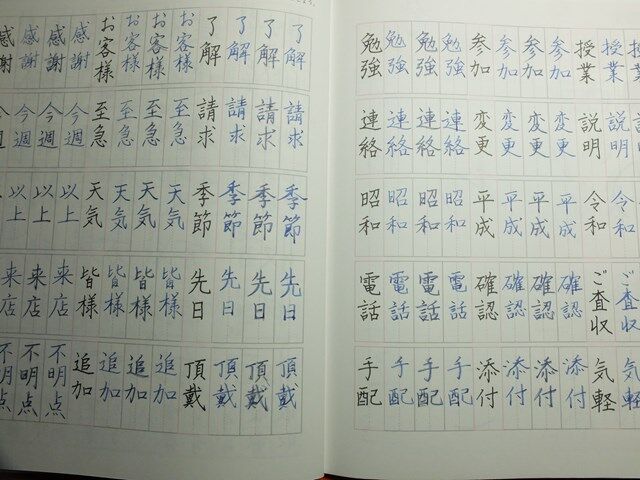 授業 授業 参加 参加 参加 参加 勉強 勉強 勉強 勉強
説明 説明 変更 変更 変更 変更 連絡 連絡 連絡 連絡
令和 令和 平成 平成 平成 平成 昭和 昭和 昭和 昭和
ご査収 ご査収 確認 確認 確認 確認 電話 電話 電話 電話
気軽 気軽 添付 添付 添付 添付 手配 手配 手配 手配
了解 了解 了解 了解 お客様 お客様 お客様 お客様 感謝 感謝 感謝 感謝
請求 請求 請求 請求 至急 至急 至急 至急 今週 今週 今週
季節 季節 季節 季節 天気 天気 天気 天気 以上 以上 以上
先日 先日 先日 先日 皆様 皆様 皆様 皆様 来店 来店 来店
頂戴 頂戴 頂戴 頂戴 追加 追加 追加 追加 不明点 不明点 不明点